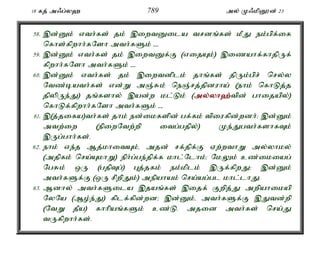 18 கத் அஃப்லஹ 789 அல் முஃமினூன் 23
58. இன்னும் எவர்கள் தம் இறைவனுடைய வசனங்கள் மீது நம்பிக்கை
கொள்கிறார்களோ அவர்களும் ...
59. இன்னும் எவர்கள் தம் இறைவனுக்கு (எதையும்) இணையாக்காதிருக்
கிறார்களோ அவர்களும் ...
60. இன்னும் எவர்கள் தம் இறைவனிடம் தாங்கள் திரும்பிச் செல்ல
வேண்டியவர்கள் என்று அஞ்சும் நெஞ்சத்தினராய் (நாம் கொடுத்த
திலிருந்து) தங்களால் இயன்ற மட்டும் (அல்லாஹ்வின் பாதையில்)
கொடுக்கிறார்களோ அவர்களும் ...
61. இ(த்தகைய)வர்கள் தாம் நன்மைகளின் பக்கம் விரைகின்றனர்; இன்னும்
அவற்றை (நிறைவேற்றி வைப்பதில்) முந்துபவர்களாகவும்
இருப்பார்கள்.
62. நாம் எந்த ஆத்மாவையும், அதன் சக்திக்கு ஏற்றவாறு அல்லாமல்
(அதிகம் செய்யுமாறு) நிர்ப்பந்திக்க மாட்டோம்; மேலும் உண்மையைப்
பேசும் ஒரு (பதிவுப்) புத்தகம் நம்மிடம் இருக்கிறது; இன்னும்
அவர்களுக்கு (ஒரு சிறிதும்) அநியாயம் செய்யப்பட மாட்டாது.
63. ஆனால் அவர்களுடைய இதயங்கள் இதைக் குறித்து அறியாமையி
லேயே (ஆழ்ந்து) கிடக்கின்றன; இன்னும், அவர்களுக்கு இதுவன்றி
(வேறு தீய) காரியங்களும் உண்டு. அதனை அவர்கள் செய்து
வருகிறார்கள்.